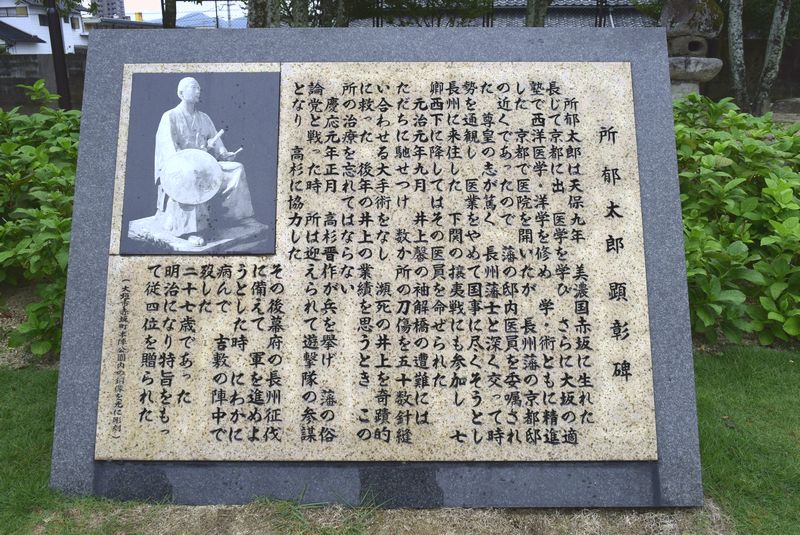 所郁太郎顕彰碑
所郁太郎は天保九年　美濃国赤坂に生れた
長じて京都に出　医学を学び　さらに大坂の適
塾で西洋医学・洋学を修め　学・術ともに精進
した　京都で医院を開いたが　長州藩の京都邸
の近くであったので　藩の邸内医員を委嘱され
た　尊皇の志が篤く　長州藩士と深く交って時
勢を通観し　医業をやめて国事に尽くそうとし
長州に来住した　下関の攘夷戦にも参加し　七
卿西下に際してはその医員を命せられた
元治元年九月　井上馨の袖解橋の遭難には
ただちに馳せつけ　数か所の刀傷を五十数針縫
い合わせる大手術をなし　瀕死の井上を奇蹟的
に救った　後年の井上の業績を思うとき　この
所の治療を忘れてはならない
慶応元年正月　高杉晋作が兵を挙げ　藩の俗
論党と戦った時　所は迎えられて遊撃隊の参謀
となり　高杉に協力した
その後幕府の長州征伐
に備えて　軍を進めよ
うとした時　にわかに
病んで　吉敷の陣中で
歿した
二十七歳であった
明治になり特旨をもっ
て従四位を贈られた
（大垣市赤坂町本陣公園内の銅像を元に彫刻）